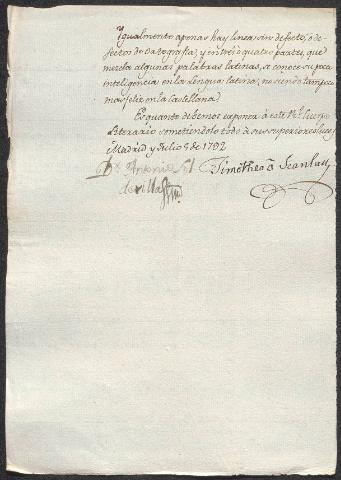 Ygualmente apenas hay linea sin defecto, o de-
fectos de Ortografia, y en tres o quatro partes, que
mezcla algunas palabras latinas, se conoce su poca
inteligencia en la lengua latina, no siendo tampoco
mas feliz en la Castellana.
Es quanto debemos exponer á este Rl. Cuerpo
Literario sometiendolo todo a sus superiores luces,
Madrid y Julio 5 de 1792
Dr. Antonio Gil Timotheo ô Scanlan
de Villa